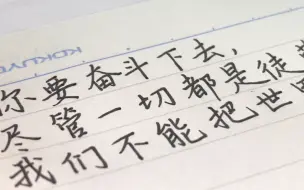 KOKUYO
你要奋斗下去,
尽管一切都是徒
我们不能把世